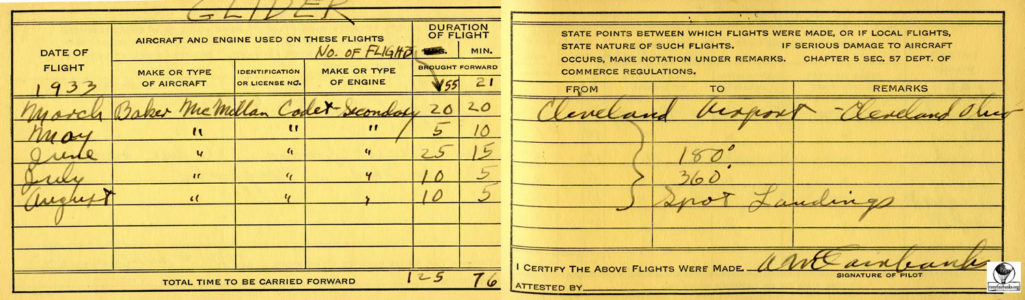 GLIDER
DATE OF FLIGHT
AIRCRAFT AND ENGINE USED ON THESE FLIGHTS
No. OF FLIGHTS
DURATION OF FLIGHT
MIN.
MAKE OR TYPE OF AIRCRAFT
IDENTIFICATION OR LICENSE NO.
MAKE OR TYPE OF ENGINE
BROUGHT FORWARD
1933
55 21
March Baker McMillan Cadet - Secondary 20 20
May " " " 5 10
June " " " 25 15
July " " " 10 5
August " " " 10 5
TOTAL TIME TO BE CARRIED FORWARD 125 76
STATE POINTS BETWEEN WHICH FLIGHTS WERE MADE, OR IF LOCAL FLIGHTS,
STATE NATURE OF SUCH FLIGHTS. IF SERIOUS DAMAGE TO AIRCRAFT
OCCURS, MAKE NOTATION UNDER REMARKS. CHAPTER 5 SEC. 57 DEPT. OF
COMMERCE REGULATIONS.
FROM TO REMARKS
Cleveland Airport - Cleveland Ohio
180°
360°
Spot Landings
I CERTIFY THE ABOVE FLIGHTS WERE MADE
SIGNATURE OF PILOT
ATTESTED BY